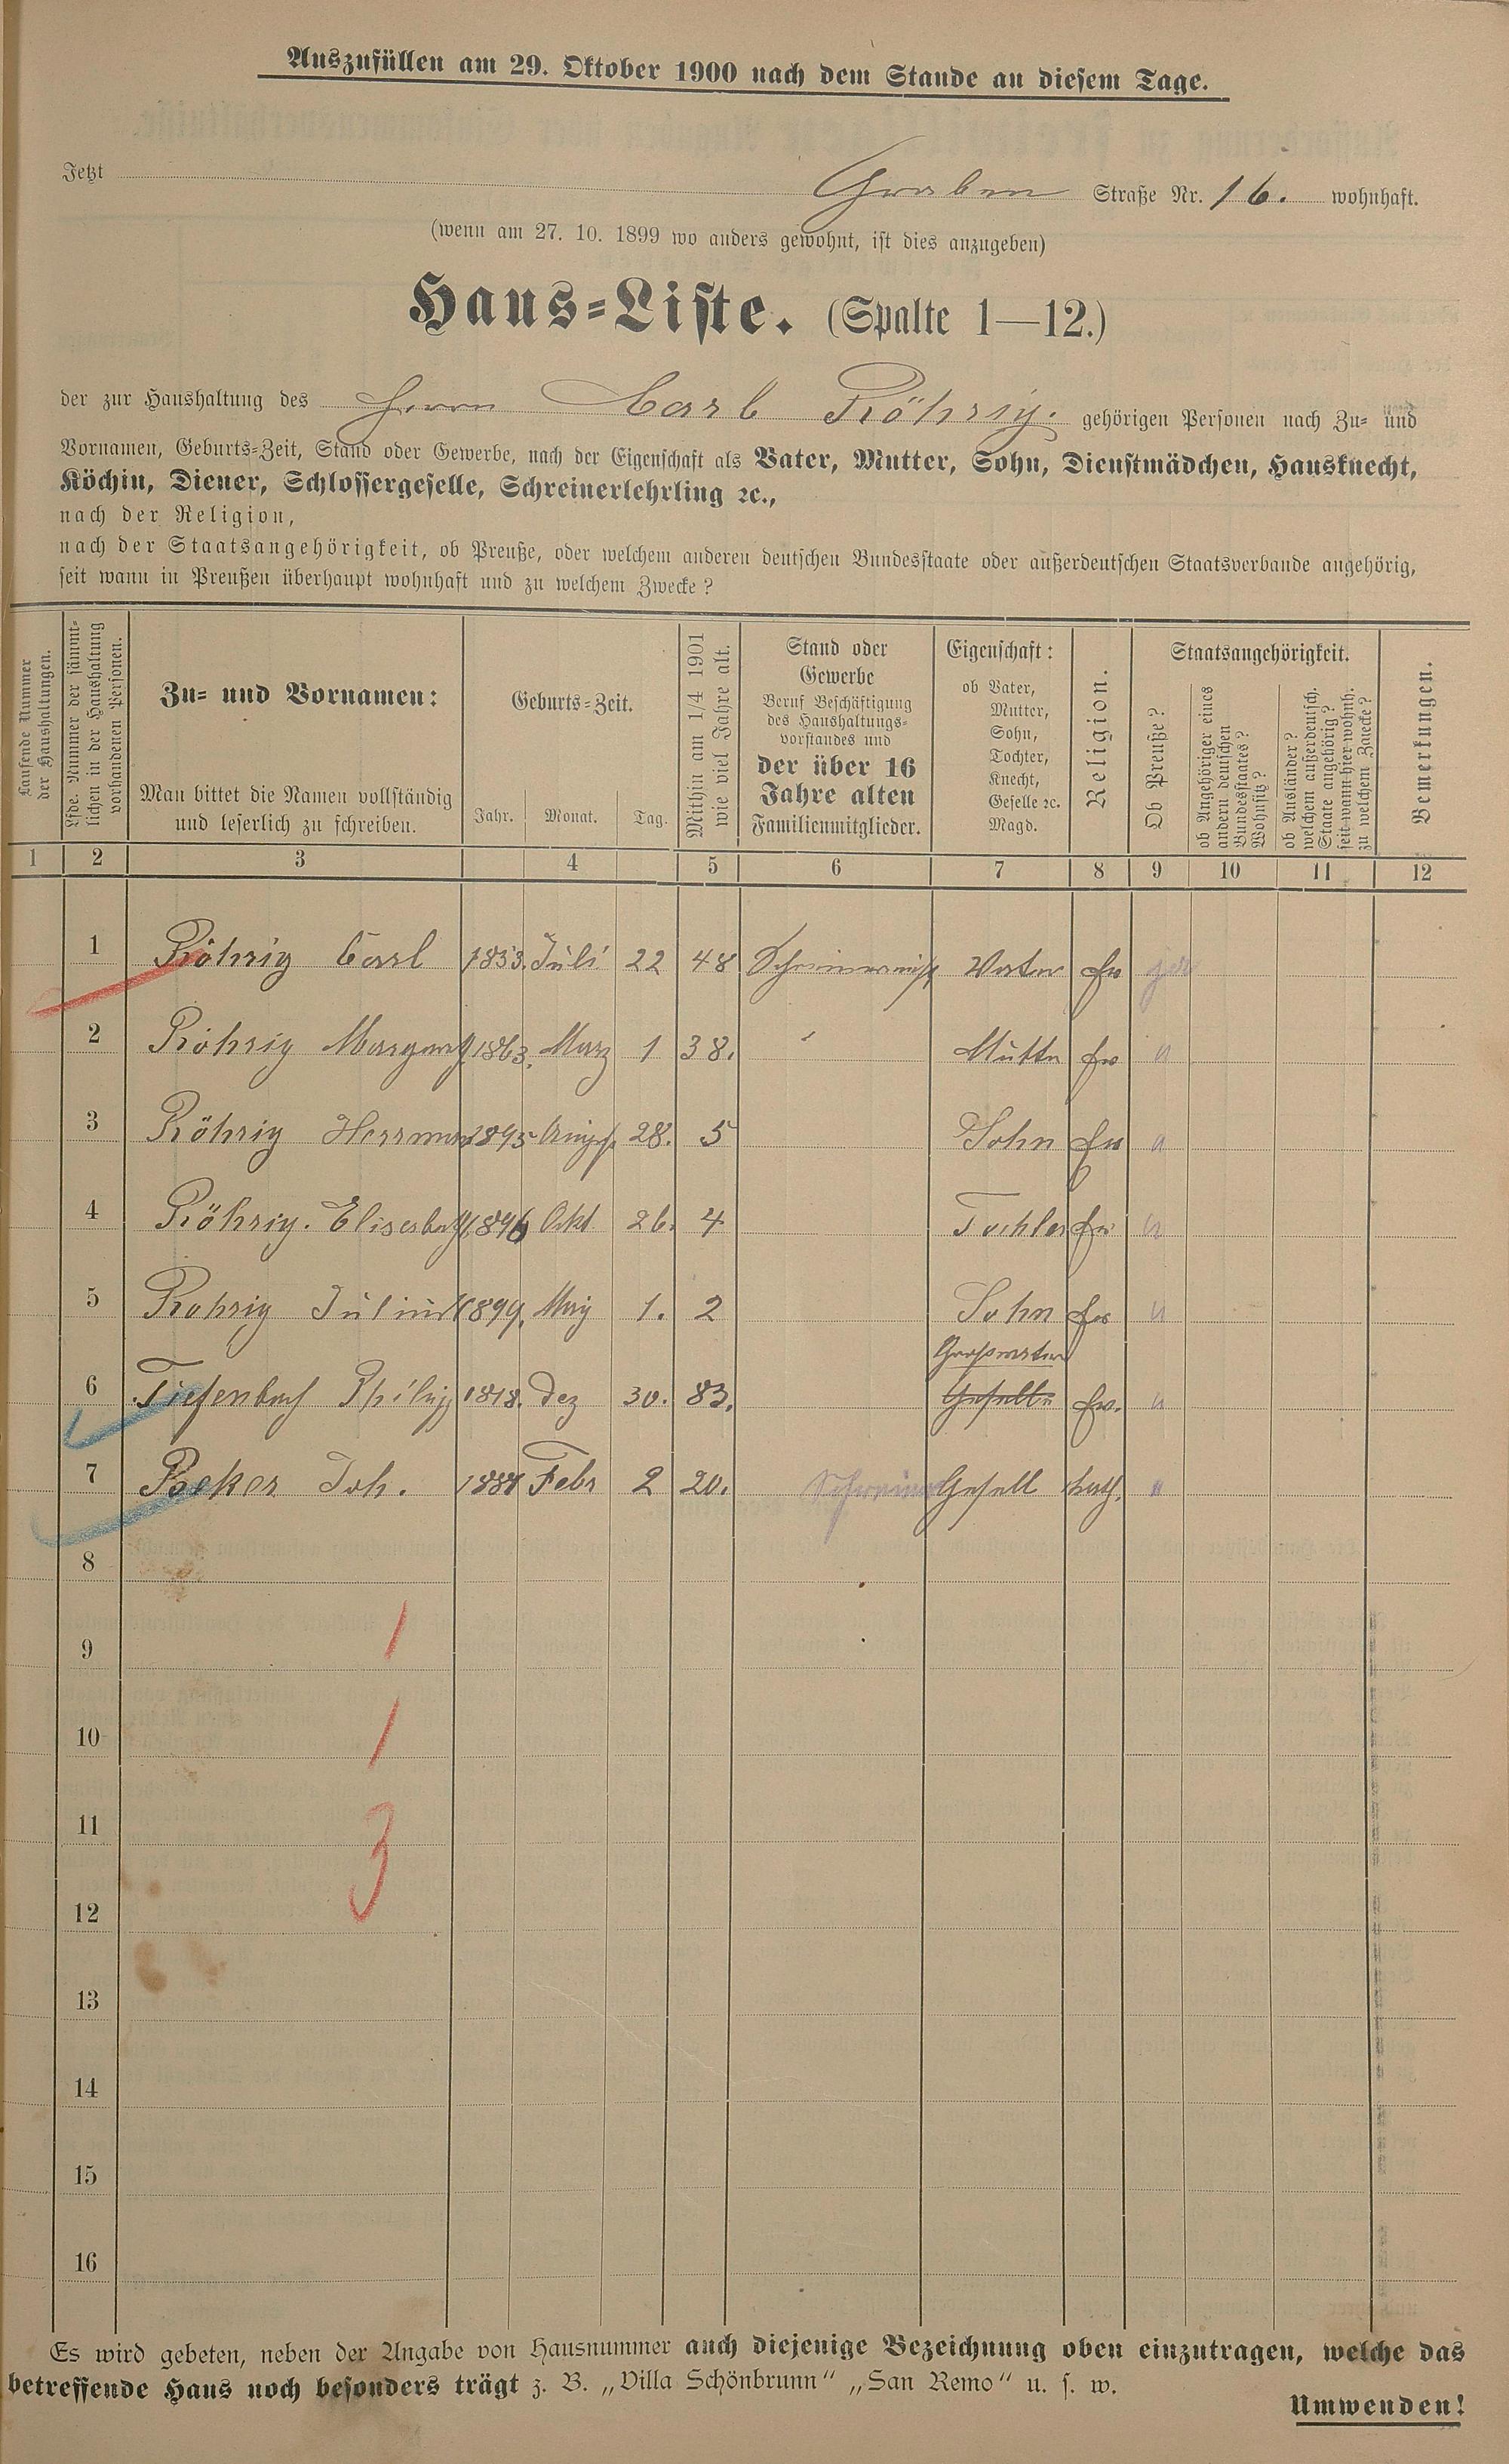 Auszufüllen am 29. Oktober 1900 nach dem Stande an diesem Tage.
Jetzt Graben Straße Nr. 16. wohnhaft.
(wenn am 27. 10. 1899 wo anders gewohnt, ist dies anzugeben)
Haus-Liste. (Spalte 1—12.)
der zur Haushaltung des Herrn Carl Röhrig. gehörigen Personen nach Zu- und
Vornamen, Geburts-Zeit, Stand oder Gewerbe, nach der Eigenschaft als Vater, Mutter, Sohn, Dienstmädchen, Hausknecht,
Köchin, Diener, Schlossergeselle, Schreinerlehrling ꝛc.,
nach der Religion,
nach der Staatsangehörigkeit, ob Preuße, oder welchem anderen deutschen Bundesstaate oder außerdeutschen Staatsverbande angehörig,
seit wann in Preußen überhaupt wohnhaft und zu welchem Zwecke?
Laufende Nummer
der Haushaltungen.
Lfde. Nummer der sämmt-
lichen in der Haushaltung
vorhandenen Personen.
Zu- und Vornamen:
Man bittet die Namen vollständig
und leserlich zu schreiben.
Geburts-Zeit.
Jahr. Monat. Tag.
Mithin am 1/4 1901
wie viel Jahre alt.
Stand oder
Gewerbe
Beruf Beschäftigung
des Haushaltungs-
vorstandes und
der über 16
Jahre alten
Familienmitglieder.
Eigenschaft:
ob Vater,
Mutter,
Sohn,
Tochter,
Knecht,
Geselle ꝛc.
Magd.
Religion.
Staatsangehörigkeit.
Ob Preuße?
ob Angehöriger eines
andern deutschen
Bundesstaates?
Wohnsitz?
ob Ausländer?
welchem außerdeutsch.
Staate angehörig?
seit wann hier wohnh.
zu welchem Zwecke?
Bemerkungen.
1 2 3 4 5 6 7 8 9 10 11 12
1 Röhrig Carl 1853. Juli 22 48 Vater ev ja
2 Röhrig Margareth 1863. März 1 38. Mutter ev "
3 Röhrig Herrman 1895 August 28. 5 Sohn ev "
4 Röhrig. Elisabeth 1896 Okt 26. 4 Tochter ev "
5 Röhrig Julius 1899. May 1. 2 Sohn ev "
Großvater
6 Tiefenbach Philipp 1818. Dez 30. 83. Geselle ev. "
7 Joh. 1881 Febr 2 20. Schreiner Gesell kath. "
8
9 1
10 1
11 3
12
13
14
15
16
Es wird gebeten, neben der Angabe von Hausnummer auch diejenige Bezeichnung oben einzutragen, welche das
betreffende Haus noch besonders trägt z. B. „Villa Schönbrunn“ „San Remo“ u. s. w.
Umwenden!